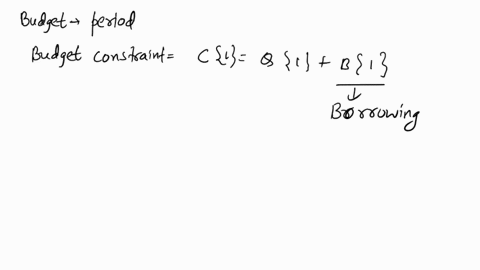 Budget → period
Budget constraint = C{1} = Q{1} + B{1}
↓
Borrowing